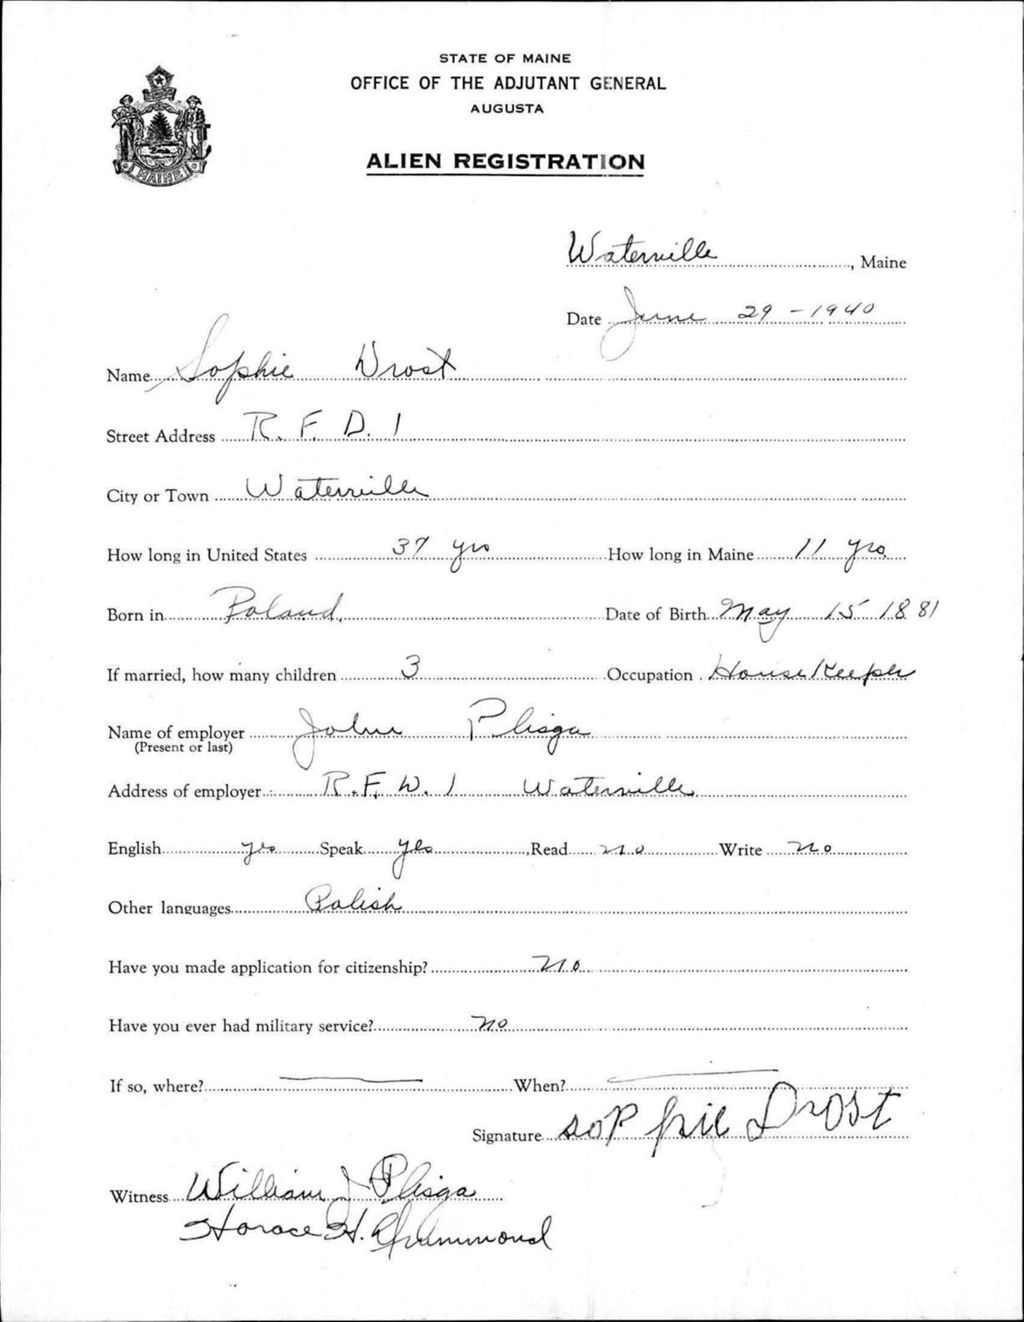 STATE OF MAINE
OFFICE OF THE ADJUTANT GENERAL
AUGUSTA
ALIEN REGISTRATION
MAINE
Waterville, Maine
Date June 29 - 1940
Name Sophie Drost
Street Address R. F. D. 1
City or Town Waterville
How long in United States 37 yrs How long in Maine 11 yrs.
Born in Poland. Date of Birth May 15 1881
If married, how many children 3 Occupation House Keeper
Name of employer John Plisga
(Present or last)
Address of employer R. F. D. 1 Waterville
English yes Speak yes Read no Write no
Other languages Polish
Have you made application for citizenship? no
Have you ever had military service? no
If so, where? — When? —
Signature sophie Drost
Witness William J Plisga
Horace H. Drummond